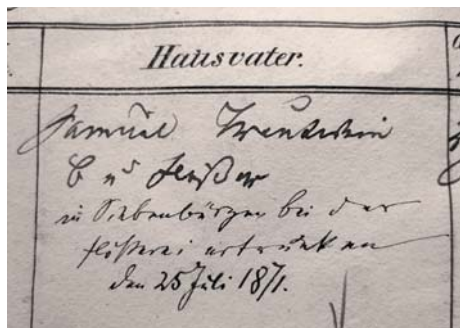 Hausvater.
Samuel Trautwein
B u s Flößer
in Siebenbürgen bei der
Flößerei ertrunken
den 25 Juli 1871.